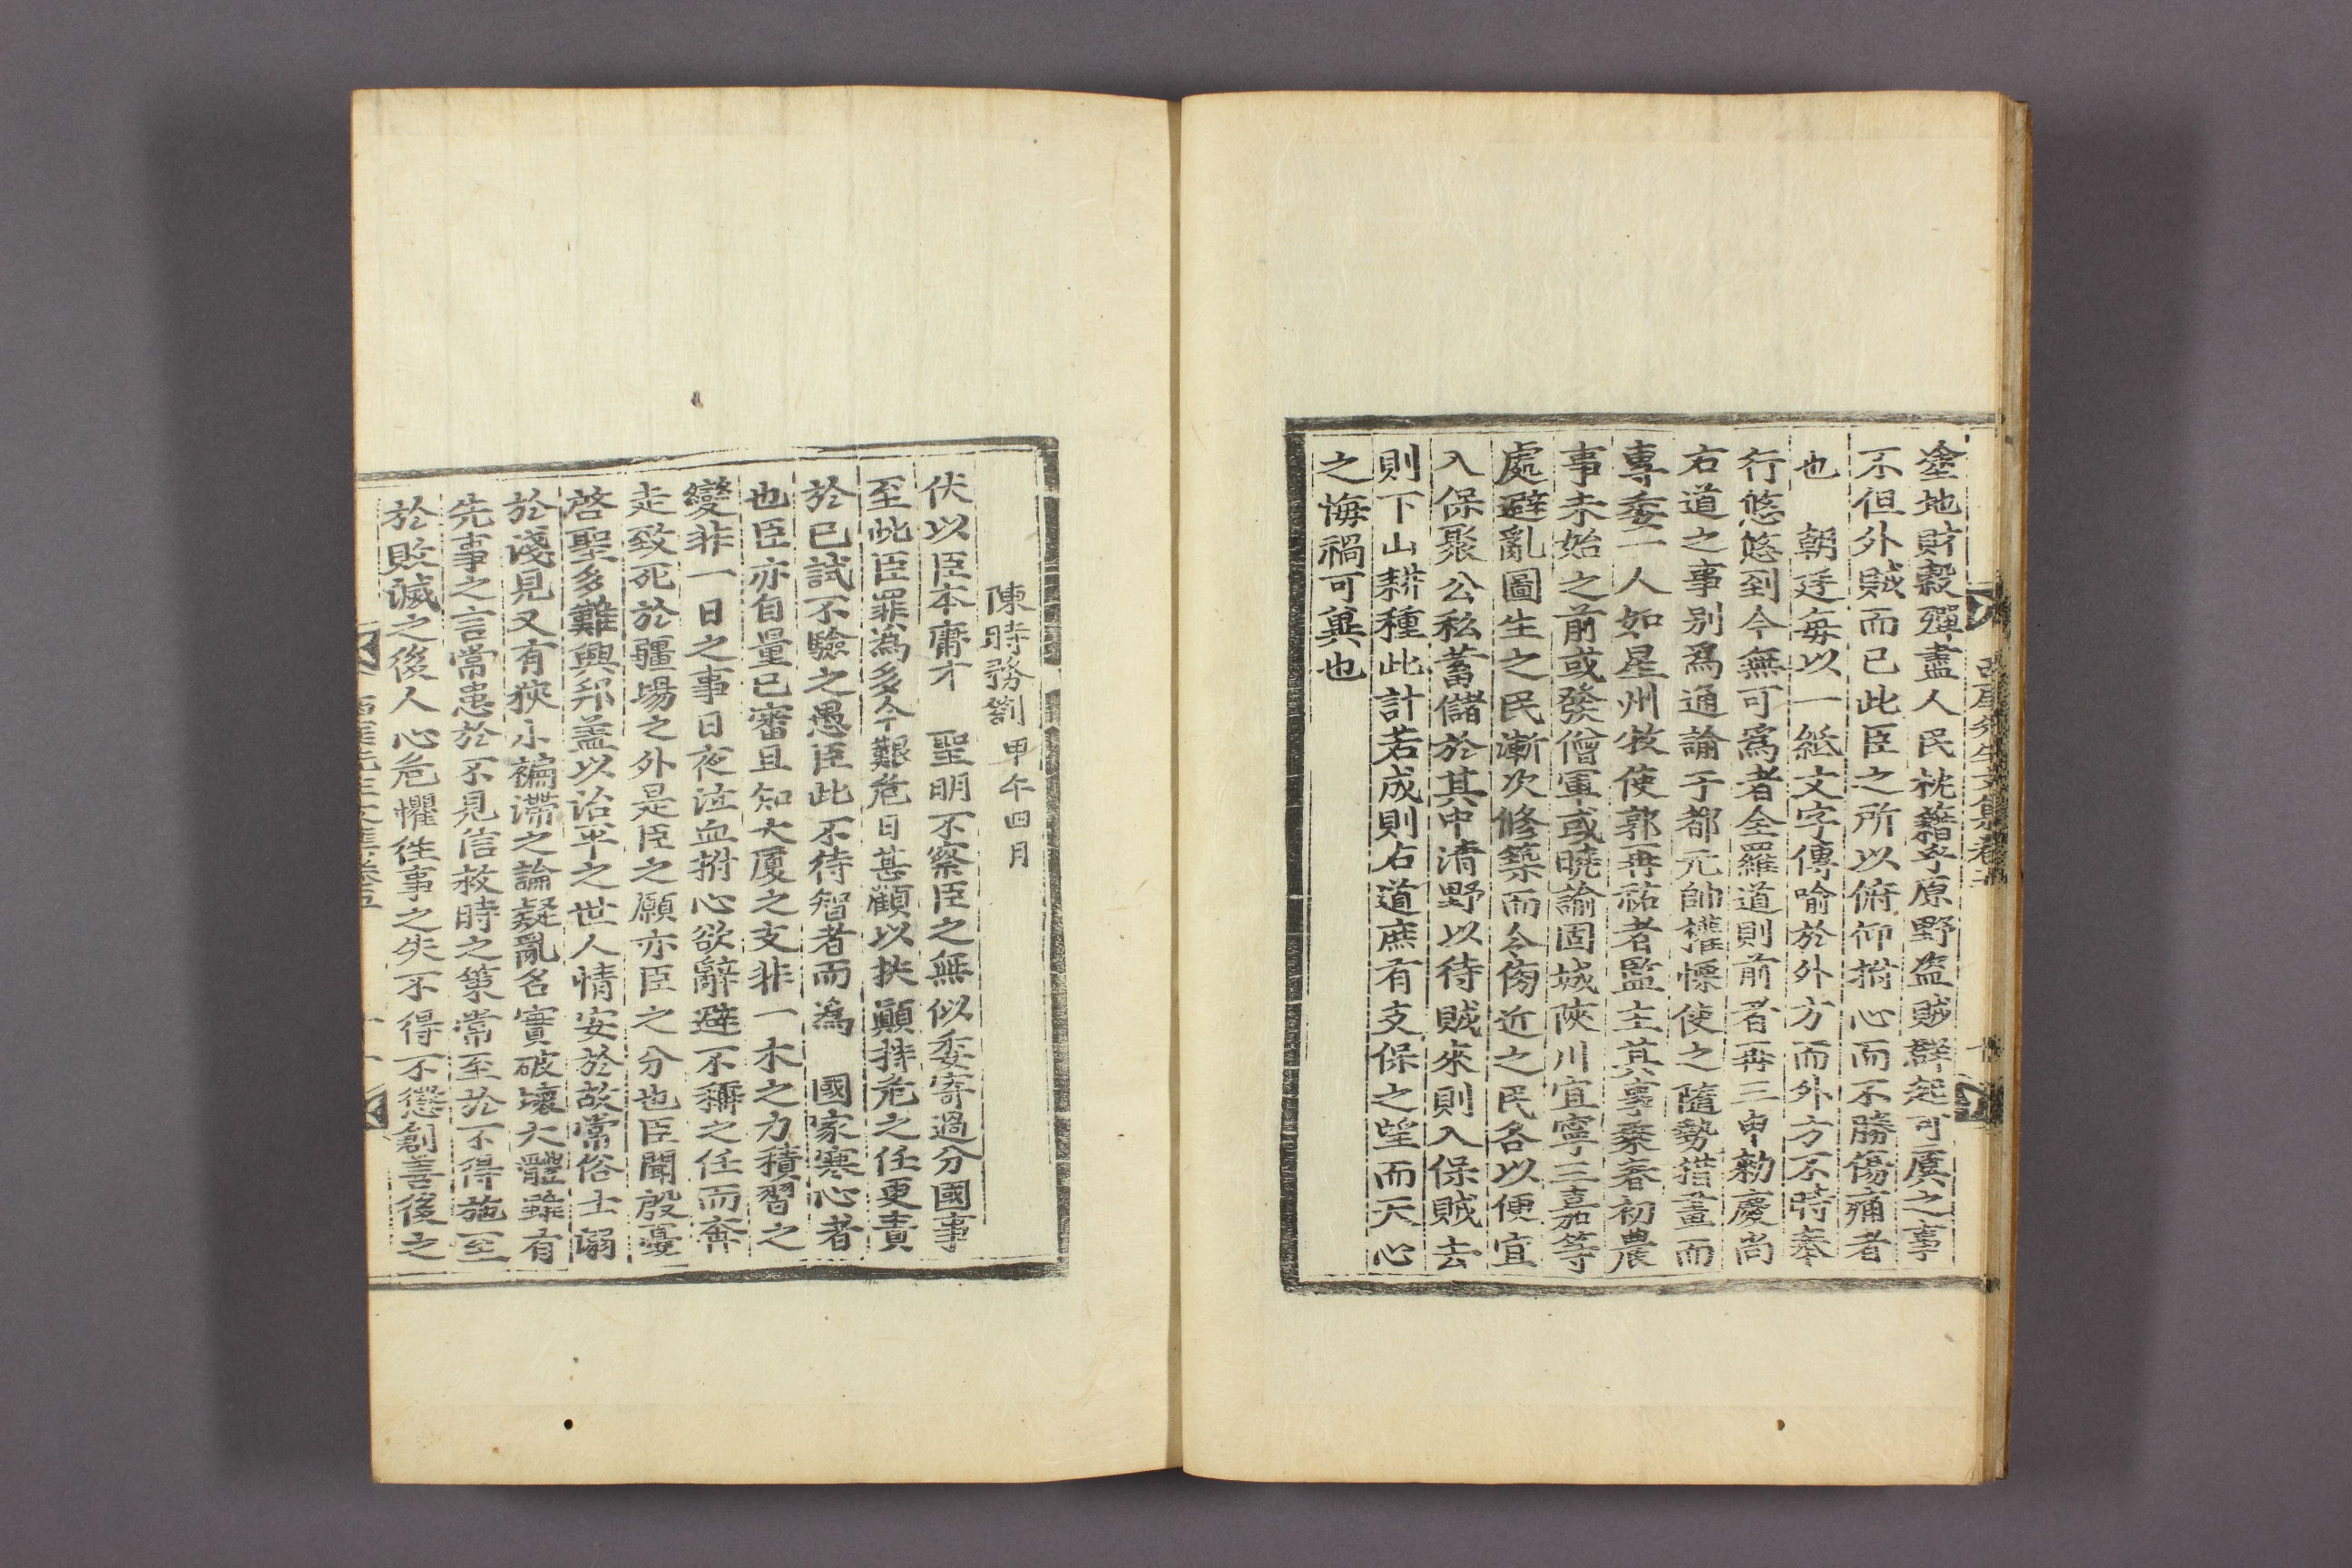 塗地財穀殫盡人民枕藉乎原野盜賊群起可虞之事
不但外賊而已此臣之所以俯仰拊心而不勝傷痛者
也　朝廷每以一紙文字傳喩於外方而外方不時奉
行悠悠到今無可爲者全羅道則前者再三申勑慶尙
右道之事別爲通諭于都元帥權慄使之隨勢措畫而
專委一人如星州牧使郭再祐者監主其事乘春初農
事未始之前或發僧軍或曉諭固城陜川宜寧三嘉等
處避亂圖生之民漸次修築而令傍近之民各以便宜
入保聚公私蓄儲於其中淸野以待賊來則入保賊去
則下山耕種此計若成則右道庶有支保之望而天心
之悔禍可冀也
陳時務箚 甲午四月
伏以臣本庸才　聖明不察臣之無似委寄過分國事
至此臣罪爲多今艱危日甚顧以扶顚持危之任更責
於已試不驗之愚臣此不待智者而爲　國家寒心者
也臣亦自量已審且知大厦之支非一木之力積習之
變非一日之事日夜泣血拊心欲辭避不稱之任而奔
走致死於疆場之外是臣之願亦臣之分也臣聞殷憂
啓聖多難興邦盖以治平之世人情安於故常俗士溺
於淺見又有狹小褊滯之論疑亂名實破壞大體雖有
先事之言常患於不見信救時之策常至於不得施至
於敗滅之後人心危懼往事之失不得不懲創善後之